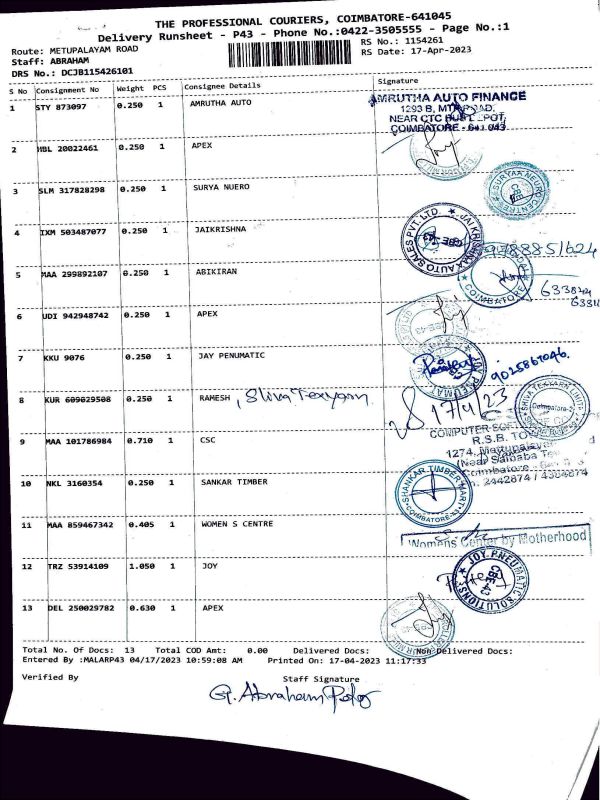 THE PROFESSIONAL COURIERS, COIMBATORE-641045
Delivery Runsheet - P43 - Phone No.:0422-3505555 - Page No.:1
Route: METUPALAYAM ROAD
RS No.: 1154261
Staff: ABRAHAM
RS Date: 17-Apr-2023
DRS No.: DCJB115426101
S No Consignment No Weight PCS Consignee Details Signature
1 STY 873097 0.250 1 AMRUTHA AUTO
AMRUTHA AUTO FINANCE
1293 B, MTP ROAD,
NEAR CTC BUS DEPOT,
COIMBATORE - 641 043
2 MBL 20022461 0.250 1 APEX
3 SLM 317828298 0.250 1 SURYA NUERO
SURYAA NEURO CENTRE
4 IXM 503487077 0.250 1 JAIKRISHNA
JAI KRISHNAA AUTO SALES PVT. LTD.
CBE-43
5 MAA 299892107 0.250 1 ABIKIRAN
COIMBATORE
6 UDI 942948742 0.250 1 APEX
7 KKU 9076 0.250 1 JAY PENUMATIC
9025867046
8 KUR 609029508 0.250 1 RAMESH, Shiva Texyarn
17/4/23
SHIVA TEXYARN LIMITED
Coimbatore-2
9 MAA 101786984 0.710 1 CSC
COMPUTER SOFT
R.S.B. TO
1274, Mettupalayam
(Near Saibaba Te
Coimbatore
2442874 / 4364874
10 NKL 3160354 0.250 1 SANKAR TIMBER
SHANKAR TIMBER MART
COIMBATORE-43
11 MAA 859467342 0.405 1 WOMEN S CENTRE
Womens Center by Motherhood
12 TRZ 53914109 1.050 1 JOY
JOY PNEUMATIC SOLUTIONS
CBE-43
13 DEL 250029782 0.630 1 APEX
Total No. Of Docs: 13 Total COD Amt: 0.00 Delivered Docs: Non Delivered Docs:
Entered By :MALARP43 04/17/2023 10:59:08 AM Printed On: 17-04-2023 11:17:33
Verified By Staff Signature
G. Abraham